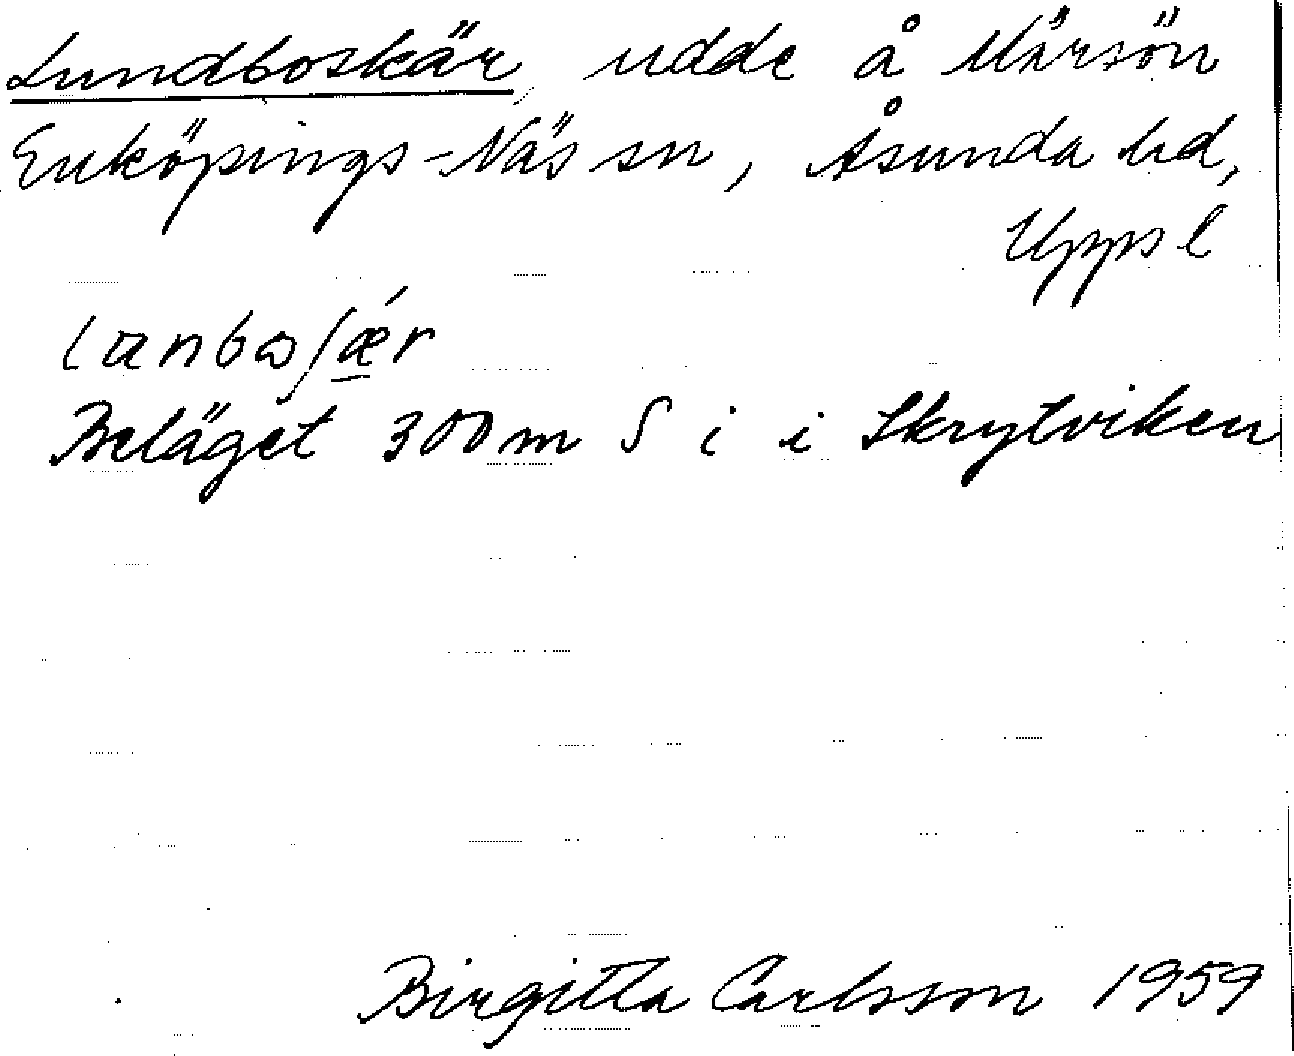 Lundboskär, udde å Märsön
Enköpings-Näs sn, Åsunda hd,
Uppsl
Beläget 300 m S i i Skrytviken
Birgitta Carlsson 1959